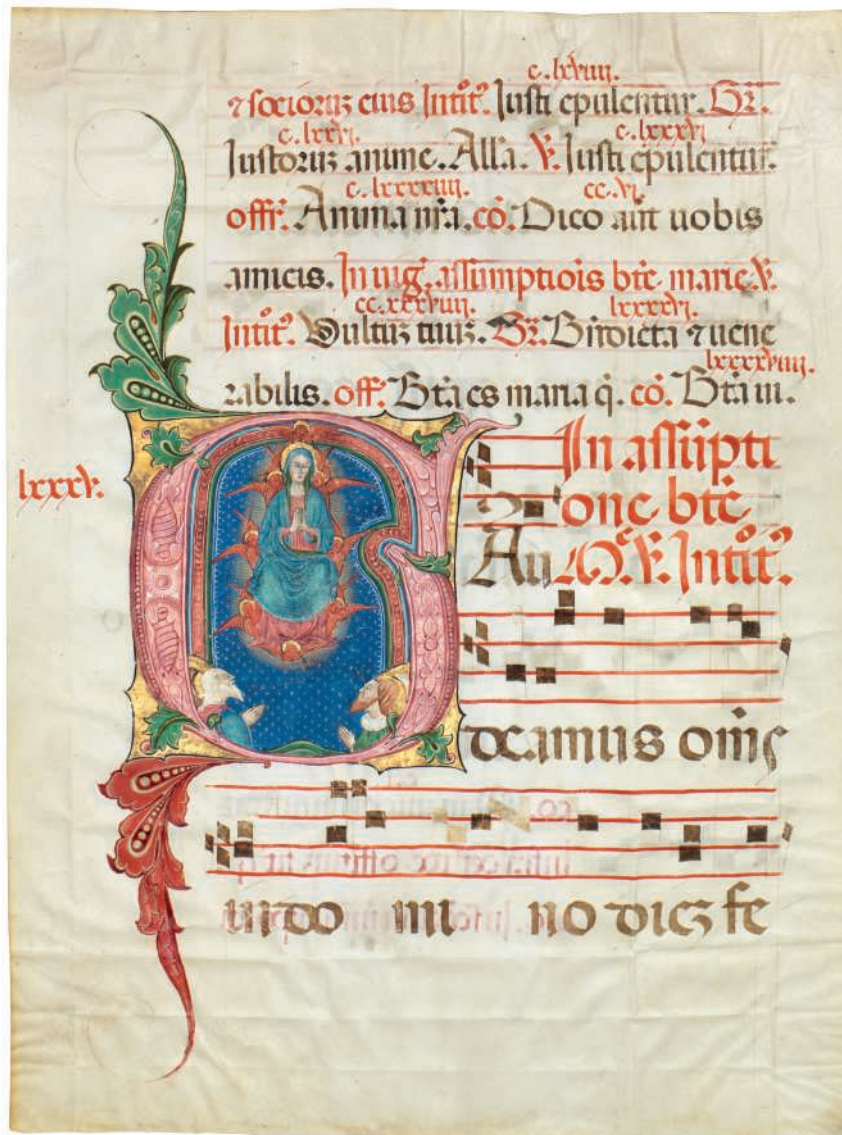 c. lxviiii.
⁊ socioruʒ eius Intoit᷒. Iusti epulentur. Gr̄.
c. lxxvi c. lxxxvi
Iustoruʒ anime. Alla. V. Iusti epulentur.
c. lxxxxiiii. cc. vi.
offr̄. Anima nr̄a. cō. Dico aūt uobis
amicis. In uig. assumptiōis bt̄e marie. V.
cc. xxxviiii. lxxxxvi.
Intoit᷒. Uultuʒ tuuʒ. Gr̄. Bn̄dicta ⁊ uene
lxxxxviiii.
rabilis. off̄. Bt̄a es maria q̄. cō. Bt̄a ui.
In assūpti
lxxxv.
one bt̄e
Au V. Intoit᷒.
G
deamus om̄s
in do mi no dieʒ fe